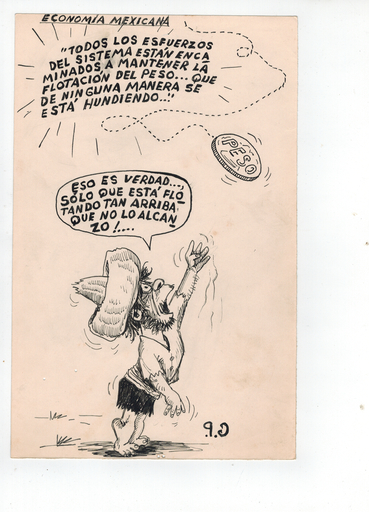 ECONOMÍA MEXICANA
"TODOS LOS ESFUERZOS
DEL SISTEMA ESTÁN ENCA
MINADOS A MANTENER LA
FLOTACIÓN DEL PESO... QUE
DE NINGUNA MANERA SE
ESTÁ HUNDIENDO..."
PESO
ESO ES VERDAD...,
SÓLO QUE ESTÁ FLO
TANDO TAN ARRIBA
QUE NO LO ALCAN
ZO!....